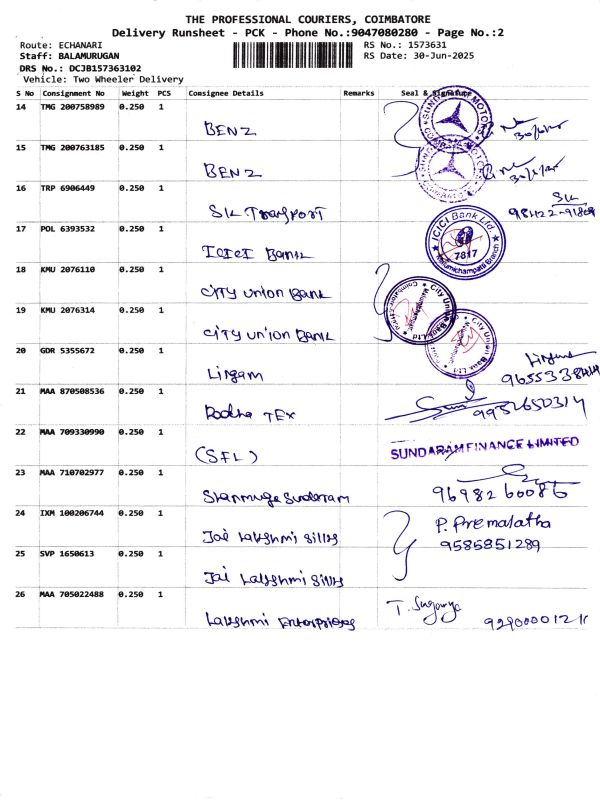 THE PROFESSIONAL COURIERS, COIMBATORE
Delivery Runsheet - PCK - Phone No.:9047080280 - Page No.:2
Route: ECHANARI
RS No.: 1573631
Staff: BALAMURUGAN
RS Date: 30-Jun-2025
DRS No.: DCJB157363102
Vehicle: Two Wheeler Delivery
S No Consignment No Weight PCS Consignee Details Remarks Seal & Signature
14 TMG 200758989 0.250 1
BENZ
15 TMG 200763185 0.250 1
BENZ
16 TRP 6906449 0.250 1
SK Transport
SK
17 POL 6393532 0.250 1
ICICI Bank
ICICI Bank Ltd.
7817
18 KMU 2076110 0.250 1
CITY Union Bank
19 KMU 2076314 0.250 1
CITY Union Bank
City Union Bank Ltd
20 GDR 5355672 0.250 1
Lingam
21 MAA 870508536 0.250 1
Radha TEX
9952650314
22 MAA 709330990 0.250 1
(SFL)
SUNDARAM FINANCE LIMITED
23 MAA 710702977 0.250 1
Shanmuga Sundaram
9698260086
24 IXM 100206744 0.250 1
Jai Lakshmi Silks
P. Premalatha
9585851289
25 SVP 1650613 0.250 1
Jai Lakshmi Silks
26 MAA 705022488 0.250 1
Lakshmi Enterprises
T. Suganya